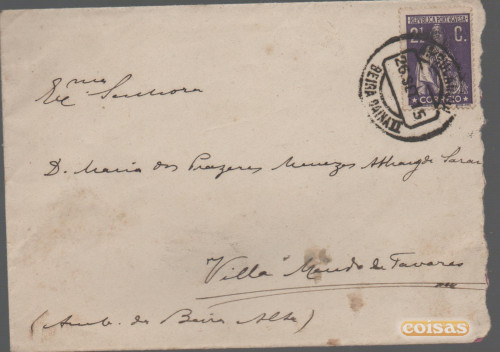 REPUBLICA PORTUGUESA
2½ C.
CORREIO
BEIRA BAIXA II
Exma Senhora
D. Maria dos Prazeres Menezes
Villa Mendo de Tavares
(Amb. da Beira Alta)
coisas